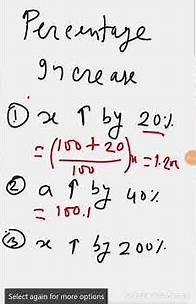 Percentage
Increase
① x ↑ by 20%
= (100 + 20 / 100)x = 1.2x
② a ↑ by 40%
= 100.1
③ x ↑ by 200%
Select again for more options